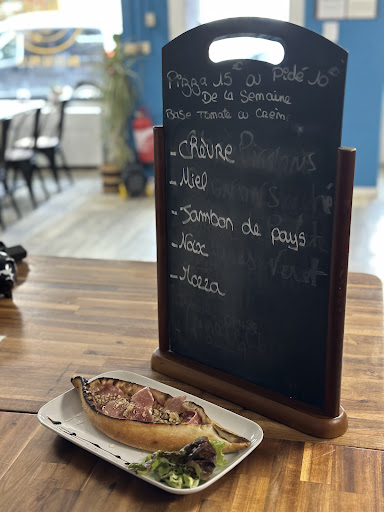 Pizza 15 ou Pidé 10
De la Semaine
Base Tomate ou Crèm
- Chèvre
- Miel
- Jambon de pays
- Noix
- Mozza